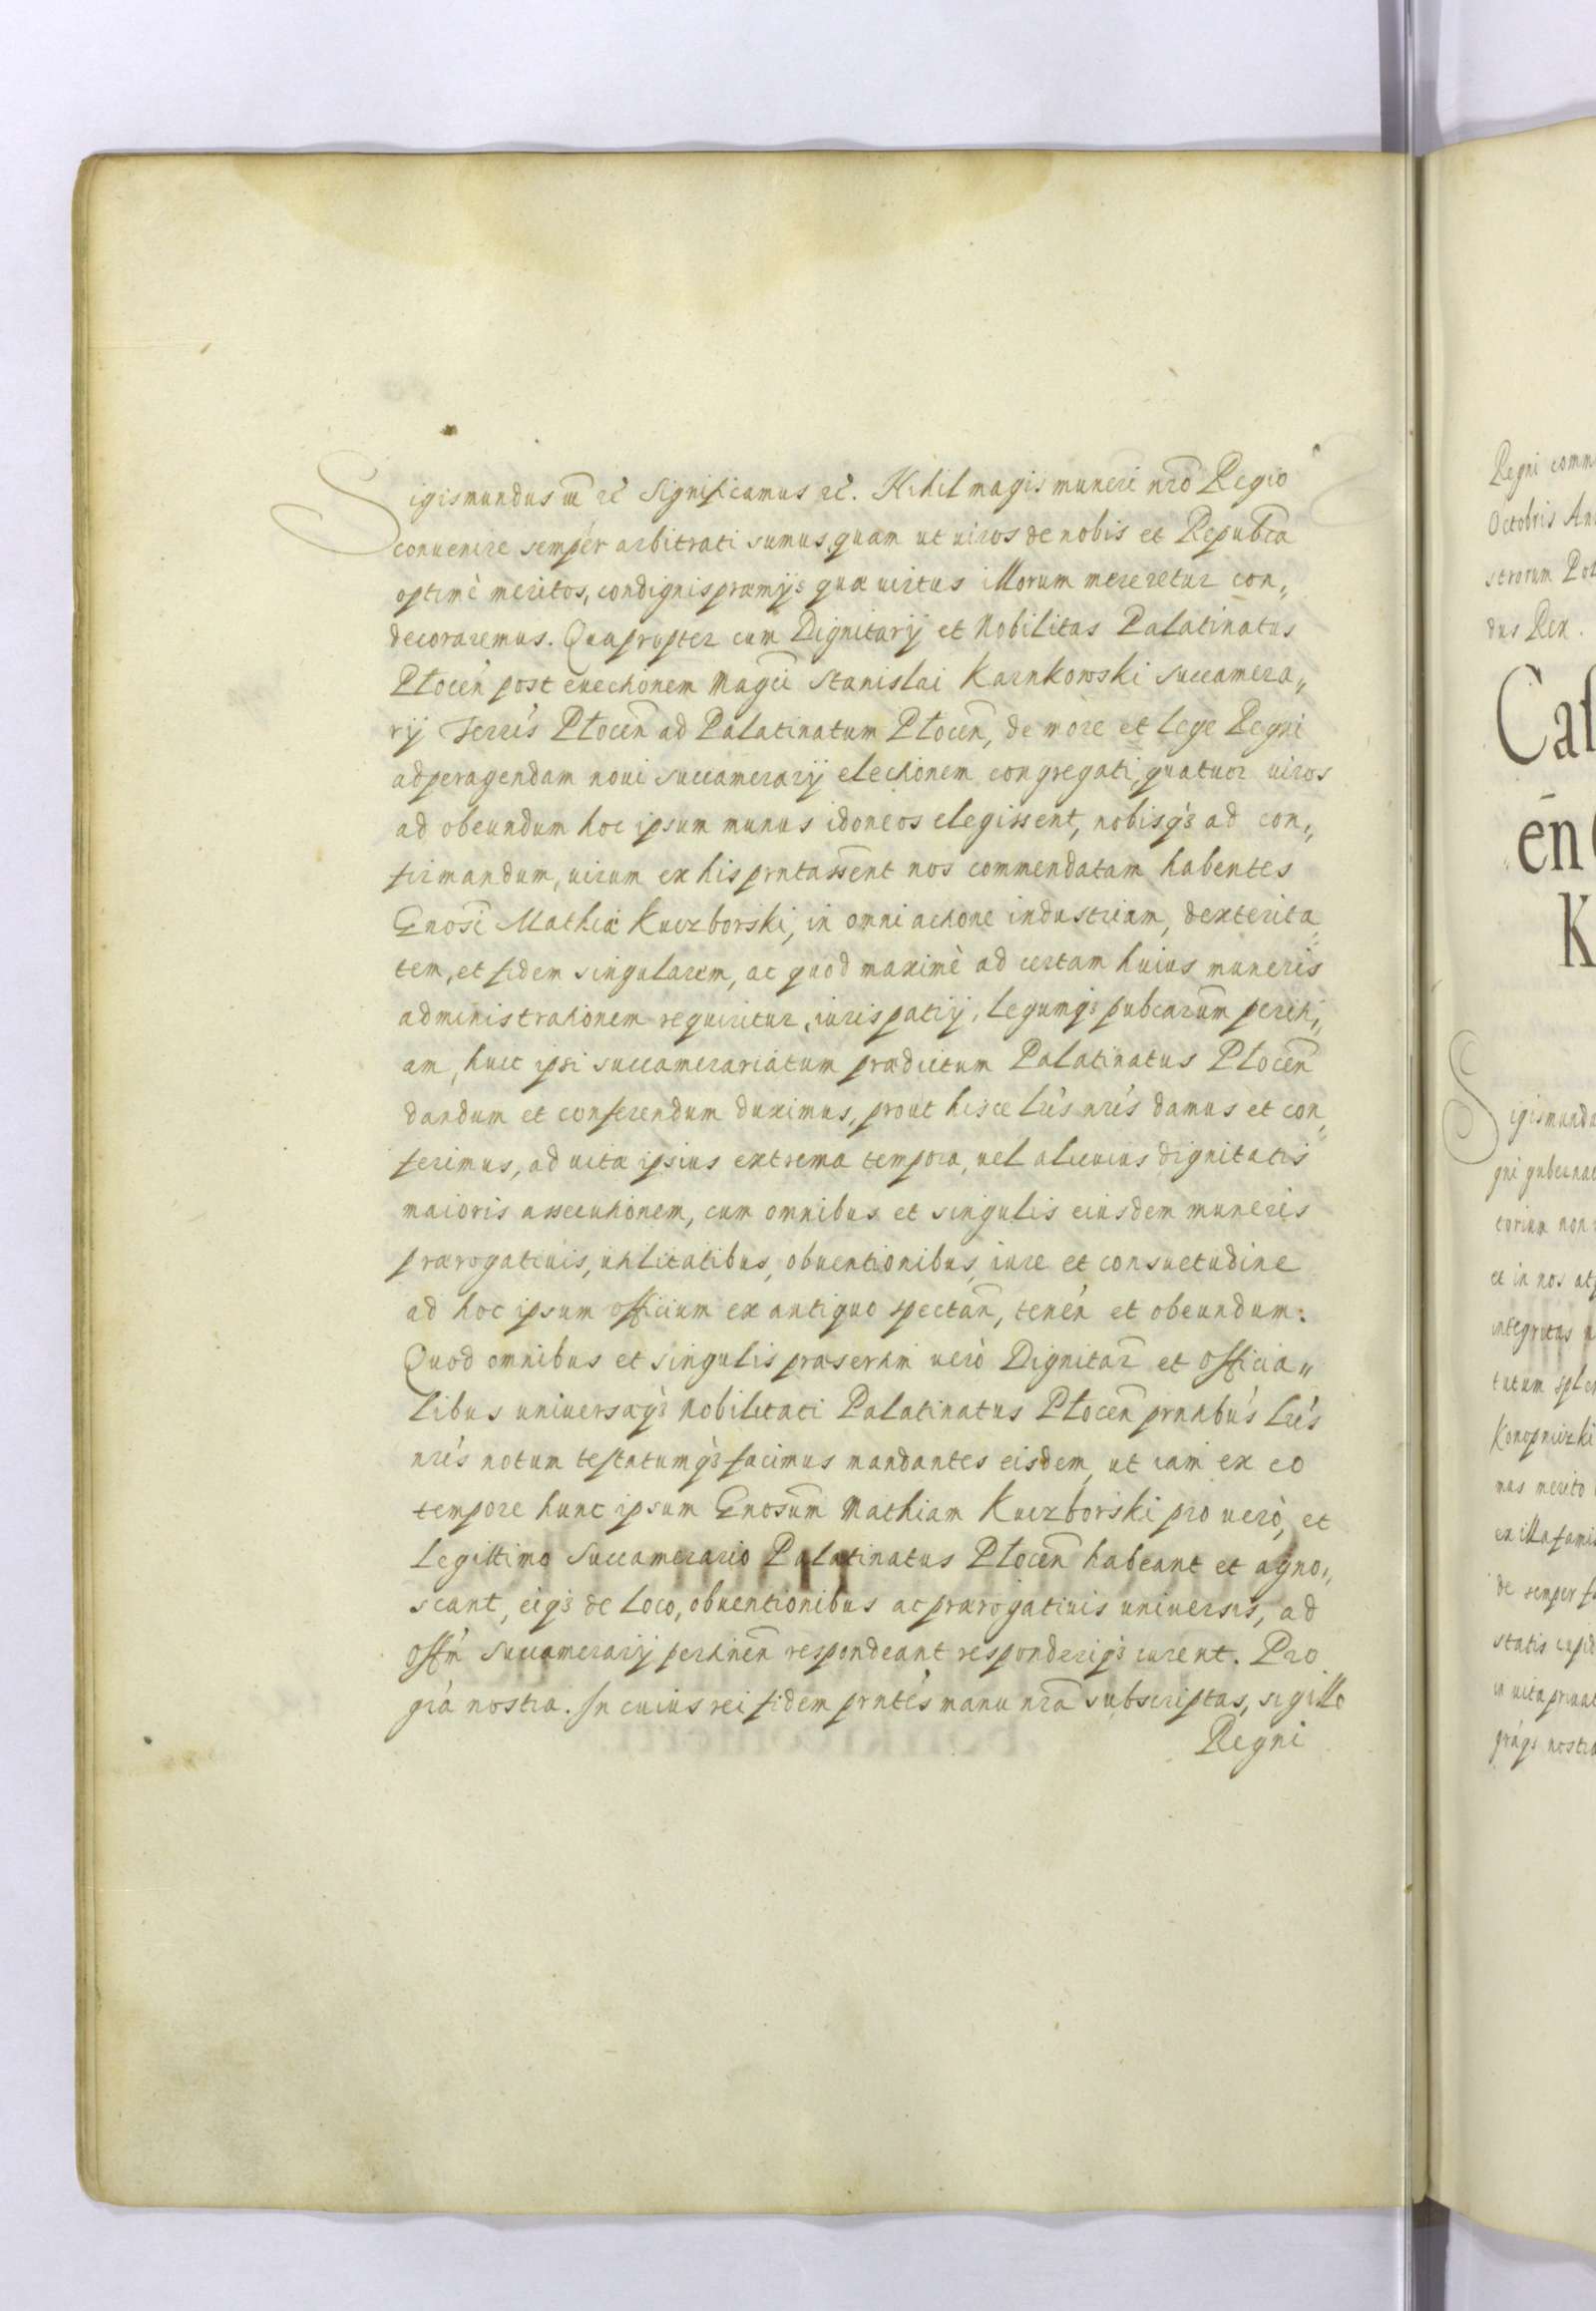 Sigismundus iii etc̃ Significamus etc̃. Nihil magis muneri nr̃o Regio
conuenire semper arbitrati sumus, quam ut uiros de nobis et Repub̃ca
optimè meritos, condignis præmijs quæ uirtus illorum mereretur con„
decoraremus. Quapropter cum Dignitarij et Nobilitas Palatinatus
Plocen̄ post euectionem Mag̃ci Stanislai Karnkowski Succamera„
rij Terrēs Plocen̄ ad Palatinatum Plocen̄, de more et lege Regni
ad peragendam noui succamerarij electionem congregati, quatuor uiros
ad obeundum hoc ipsum munus idoneos elegissent, nobisq̃ ad con„
firmandum, uirum ex his prñtassent nos commendatam habentes
Gnosi Mathiæ Kuczborski, in omni actione industriam, dexterita„
tem, et fidem singularem, ac quod maximè ad certam huius muneris
administrationem requiritur, iuris patrij, Legumq̃ pub̃carum periti„
am, huic ipsi succamerariatum prædictum Palatinatus Plocen̄
dandum et conferendum duximus, prout hisce Lr̃is nr̃is damus et con„
ferimus, ad uitæ ipsius extrema tempora, uel alicuius dignitatis
maioris assecutionem, cum omnibus et singulis eiusdem muneris
prærogatiuis, utilitatibus, obuentionibus, iure et consuetudine
ad hoc ipsum officium ex antiquo spectan̄, tenen̄ et obeundum:
Quod omnibus et singulis præsertim uerò Dignitar̃ et Officia„
libus uniuersæq̃ Nobilitati Palatinatus Plocen̄ prñtibus Lr̃is
nr̃is notum testatumq̃ facimus mandantes eisdem, ut iam ex eo
tempore hunc ipsum Gnosum Mathiam Kuczborski pro uerò, et
Legittimo Succamerario Palatinatus Plocen̄ habeant et agno„
scant, eiq̃ de Loco, obuentionibus ac prærogatiuis uniuersis, ad
Offm̃ Succamerarij pertinen̄ respondeant responderiq̃ curent. Pro
gr̃a nostra. In cuius rei fidem prñtes manu nr̃a subscriptas, sigillo
Regni
Regni comm
Octobris An
strorum Pol
dus Rex.
Cas
en
K
Sigismundu
gni gubernac
torium non
et in nos atq
integritas
tutum splen
Konopnizki
mas merito
ex illa fami
de semper f
statis cupid
in uita priuat
gr̃aq̃ nostra